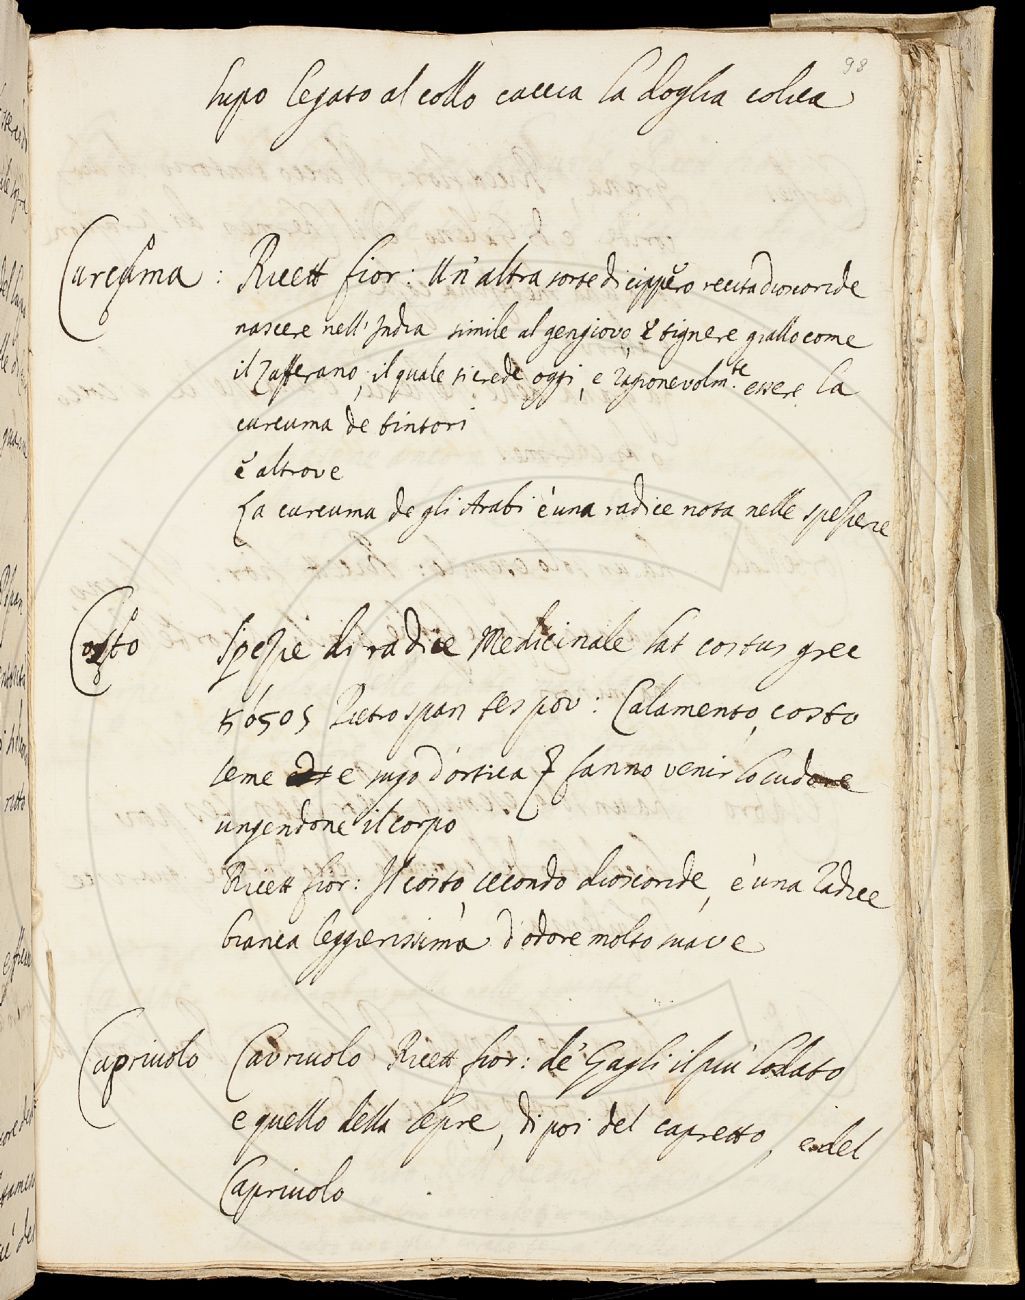 98
lupo legato al collo caccia la doglia colica
Curcuma : Ricett fior: Un'altra sorte di cippero recita dioscoride
nascere nell'India simile al gengiovo, e tignere giallo come
il Zafferano, il quale si crede oggi, e ragionevolmte essere la
curcuma de tintori
e altrove
La curcuma degli Arabi è una radice nota nelle spezierie
Costo Spezie di radice Medicinale lat costus grec
κόςος Pietro span tes pov: Calamento, costo
seme e sugo d'ortica fanno venir lo sudore
ungendone il corpo
Ricett fior: Il costo, secondo dioscoride, è una radice
bianca leggerissima d'odore molto suave
Capriuolo Cavriuolo Ricett fior: de' Gagli il più lodato
e quello della lepre, di poi del capretto, e del
Capriuolo